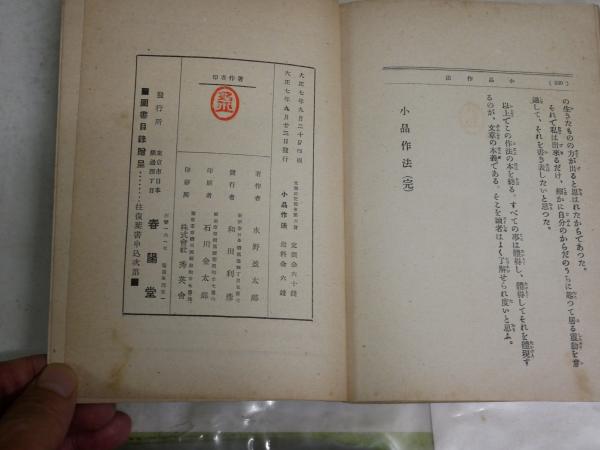 小品作法
(220)
の生きたものの方が出ると思はれたからであつた。
それで私は出來るだけ、細かに自分のからだのうちに起つて居る震動を意
識して、それを書き表したいと思つた。
以上でこの作法の本を終る。すべての事は體得し、體得してそれを體現す
るのが、文章の本義である。そこを讀者はよく了解せられ度いと思ふ。
小品作法(完)
大正七年九月二十日印刷
大正七年九月廿三日發行
小品作法
定價金六十錢
送料金六錢
著作者
水野盈太郎
發行者
和田利彦
印刷者
石川金太郎
印刷所
株式會社秀英舍
著作者印
發行所
東京市日本
橋通四丁目
春陽堂
■圖書目錄贈呈………往復葉書申込次第■